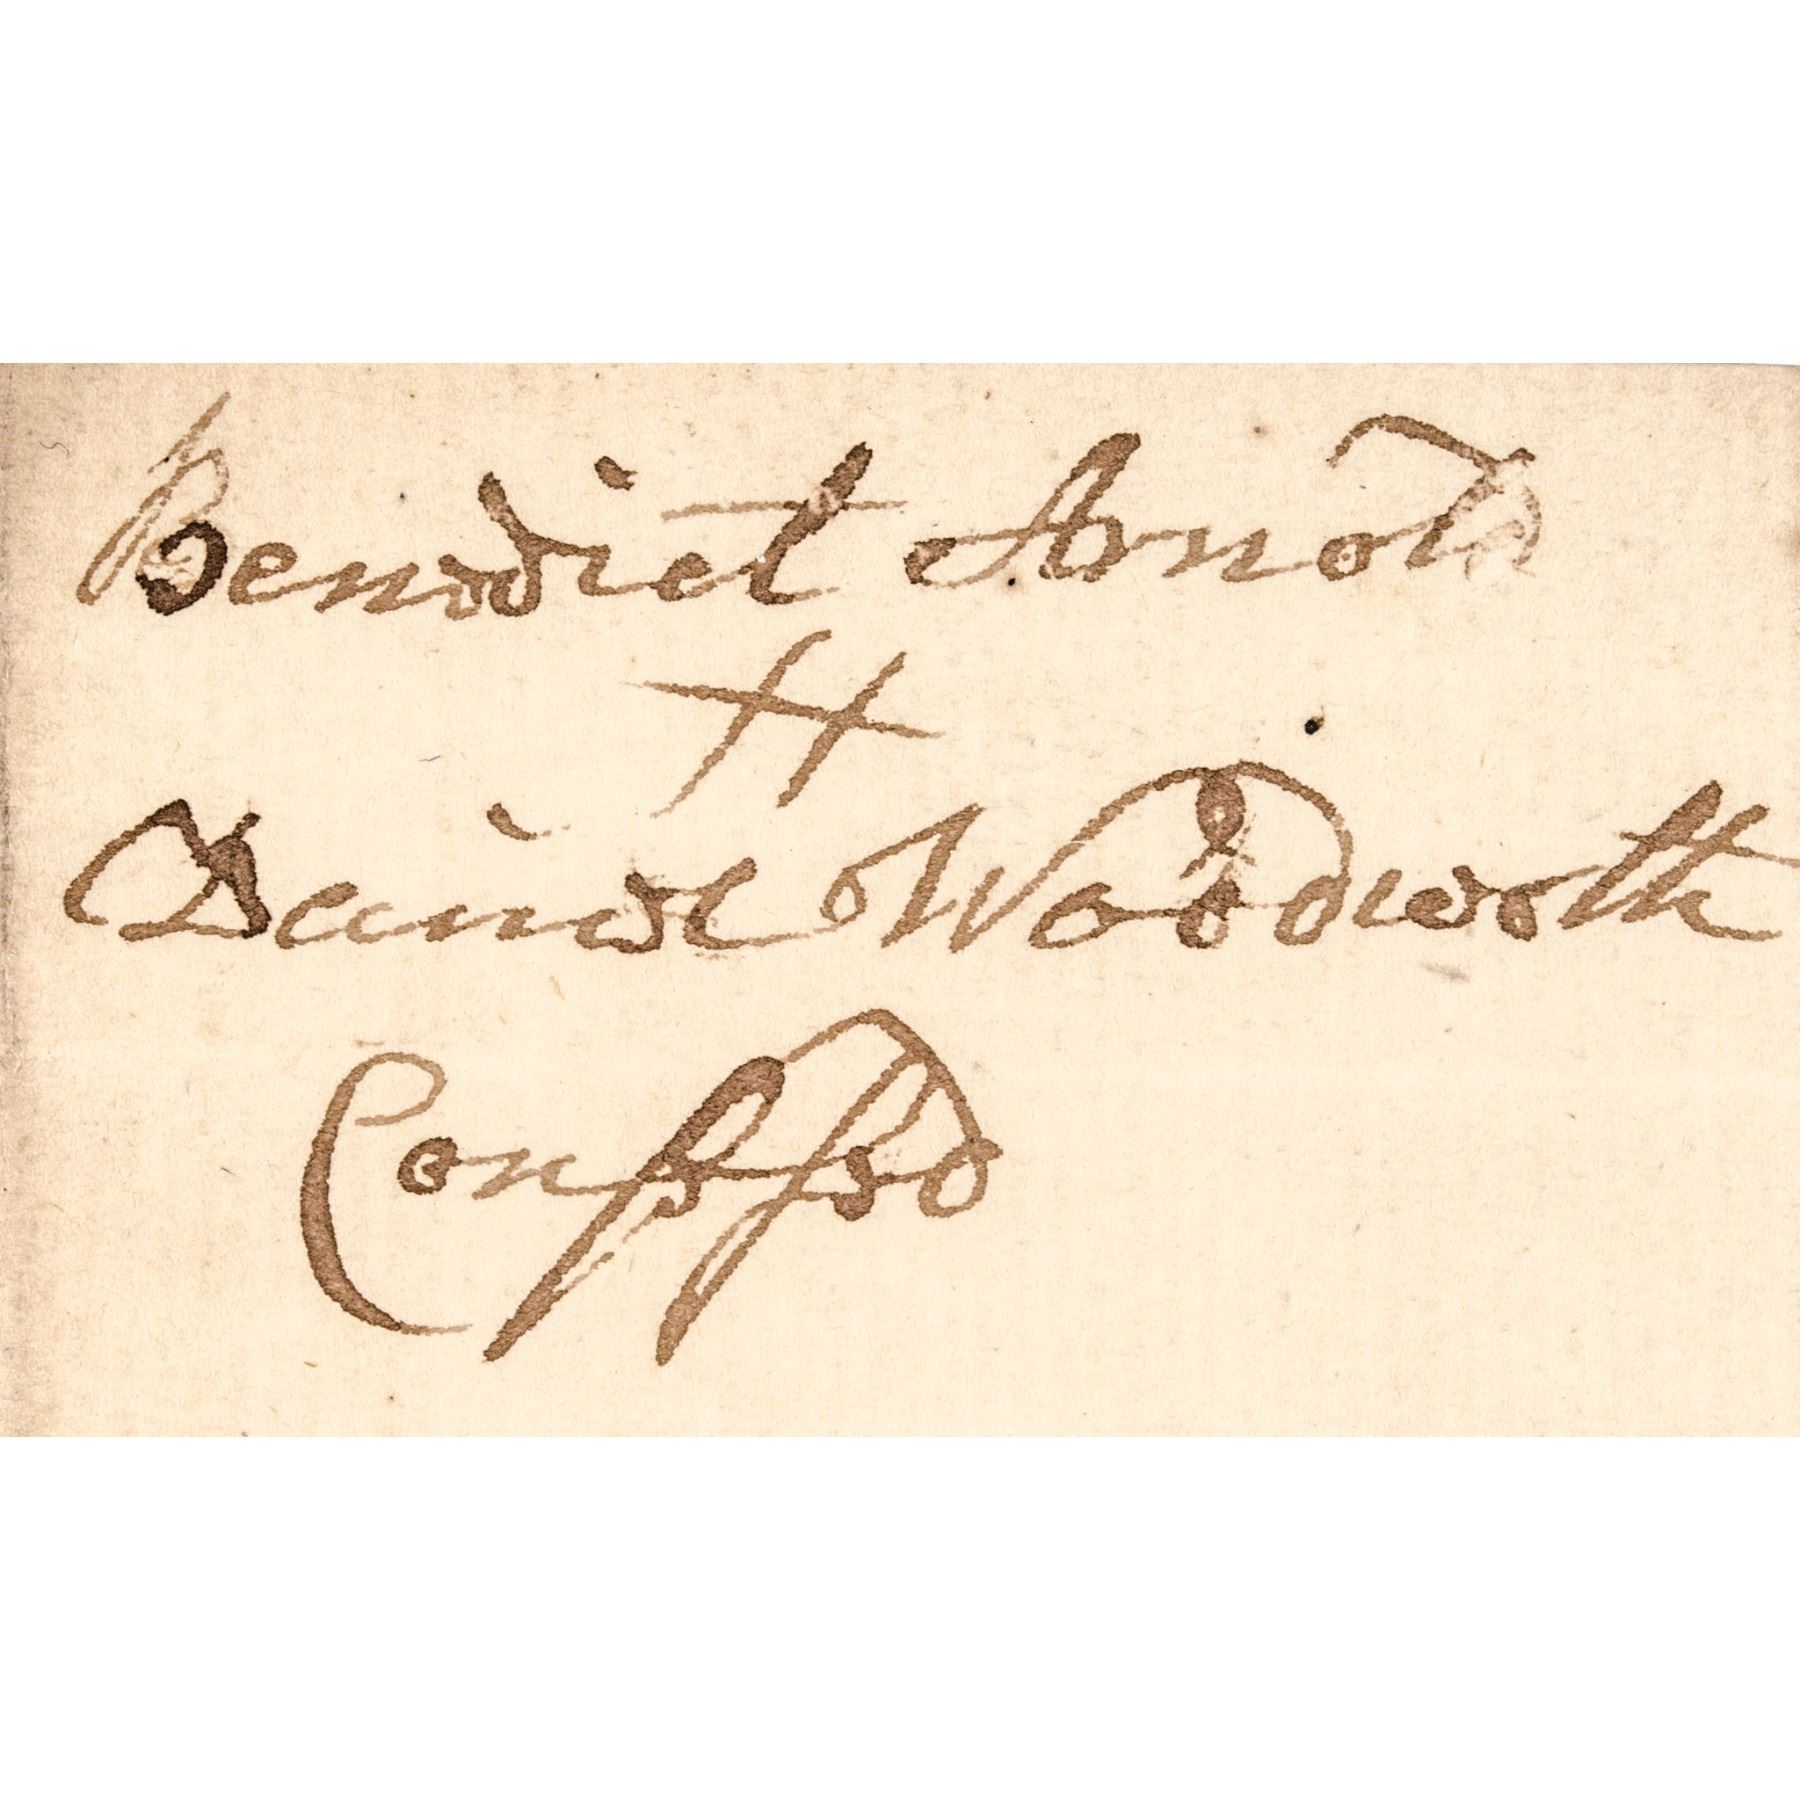 Benedict Arnold
H
Daniel Woodworth
Confssd